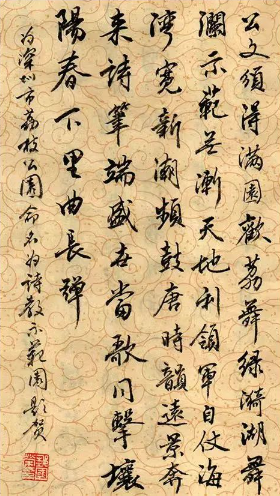 公文颁得满园欢荔舞绿漪湖舞
澜示范花渐天地利领军自仗海
湾宽新潮频鼓唐时韵远景奔
来诗笔端盛世当歌同击壤
阳春下里曲长弹
为深圳市荔枝公园命名为诗教示范园题贺